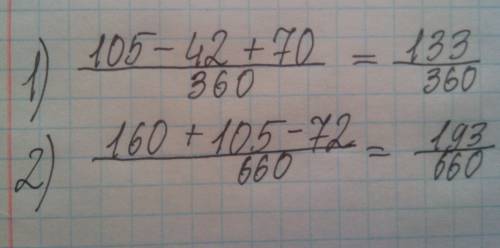 1) (105 - 42 + 70)/360 = 133/360
2) (160 + 105 - 72)/660 = 193/660